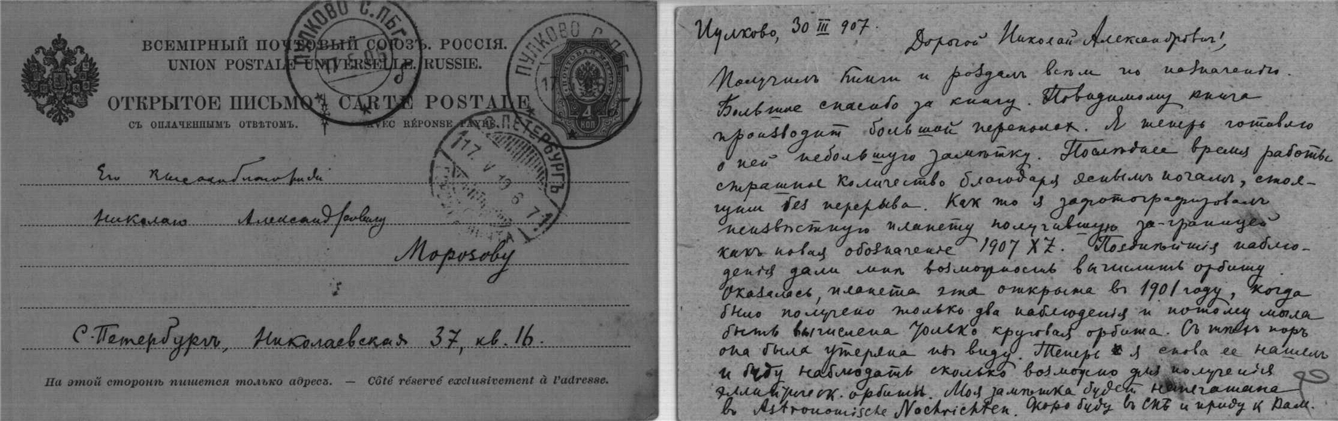 ВСЕМІРНЫЙ ПОЧТОВЫЙ СОЮЗЪ. РОССІЯ.
UNION POSTALE UNIVERSELLE. RUSSIE.
ОТКРЫТОЕ ПИСЬМО CARTE POSTALE
СЪ ОПЛАЧЕННЫМЪ ОТВѢТОМЪ. AVEC RÉPONSE PAYÉE.
ПУЛКОВО С.ПБГ.
ПУЛКОВО С.ПБГ.
4 КОП
С.ПЕТЕРБУРГЪ
17. V
Его
Николаю Александровичу
Морозову
С.Петербургъ, Николаевская 37, кв. 16.
На этой сторонѣ пишется только адресъ. — Côté réservé exclusivement à l'adresse.
Пулково, 30 III 907.
Дорогой Николай Александровичъ!,
Получилъ книги и роздалъ всѣмъ по назначенію.
Большое спасибо за книгу. Повидимому книга
производит большой переполох. Я теперь готовлю
о ней небольшую замѣтку. Последнее время работы
страшное количество благодаря яснымъ ночамъ, стоя-
щим без перерыва. Какъ то я зафотографировалъ
неизвѣстную планету получившую за-границей
какъ новая обозначеніе 1907 XZ. Позднѣйшія наблю-
денія дали мнѣ возможность вычислить орбиту.
Оказалось, планета эта открыта въ 1901 году, когда
было получено только два наблюденія и потому могла
быть вычислена только круговая орбита. Съ тѣхъ поръ
она была утеряна из виду. Теперь я снова ее нашелъ
и буду наблюдать сколько возможно для полученія
эллиптическ. орбиты. Моя замѣтка будет напечатана
въ Astronomische Nachrichten. Скоро буду въ СПБ и приду к Вам.